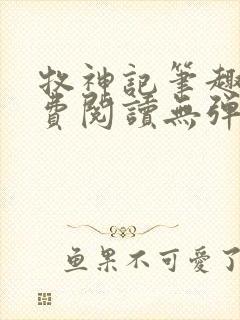 牧神記筆趣
費閱讀無彈
鱼果不可愛了